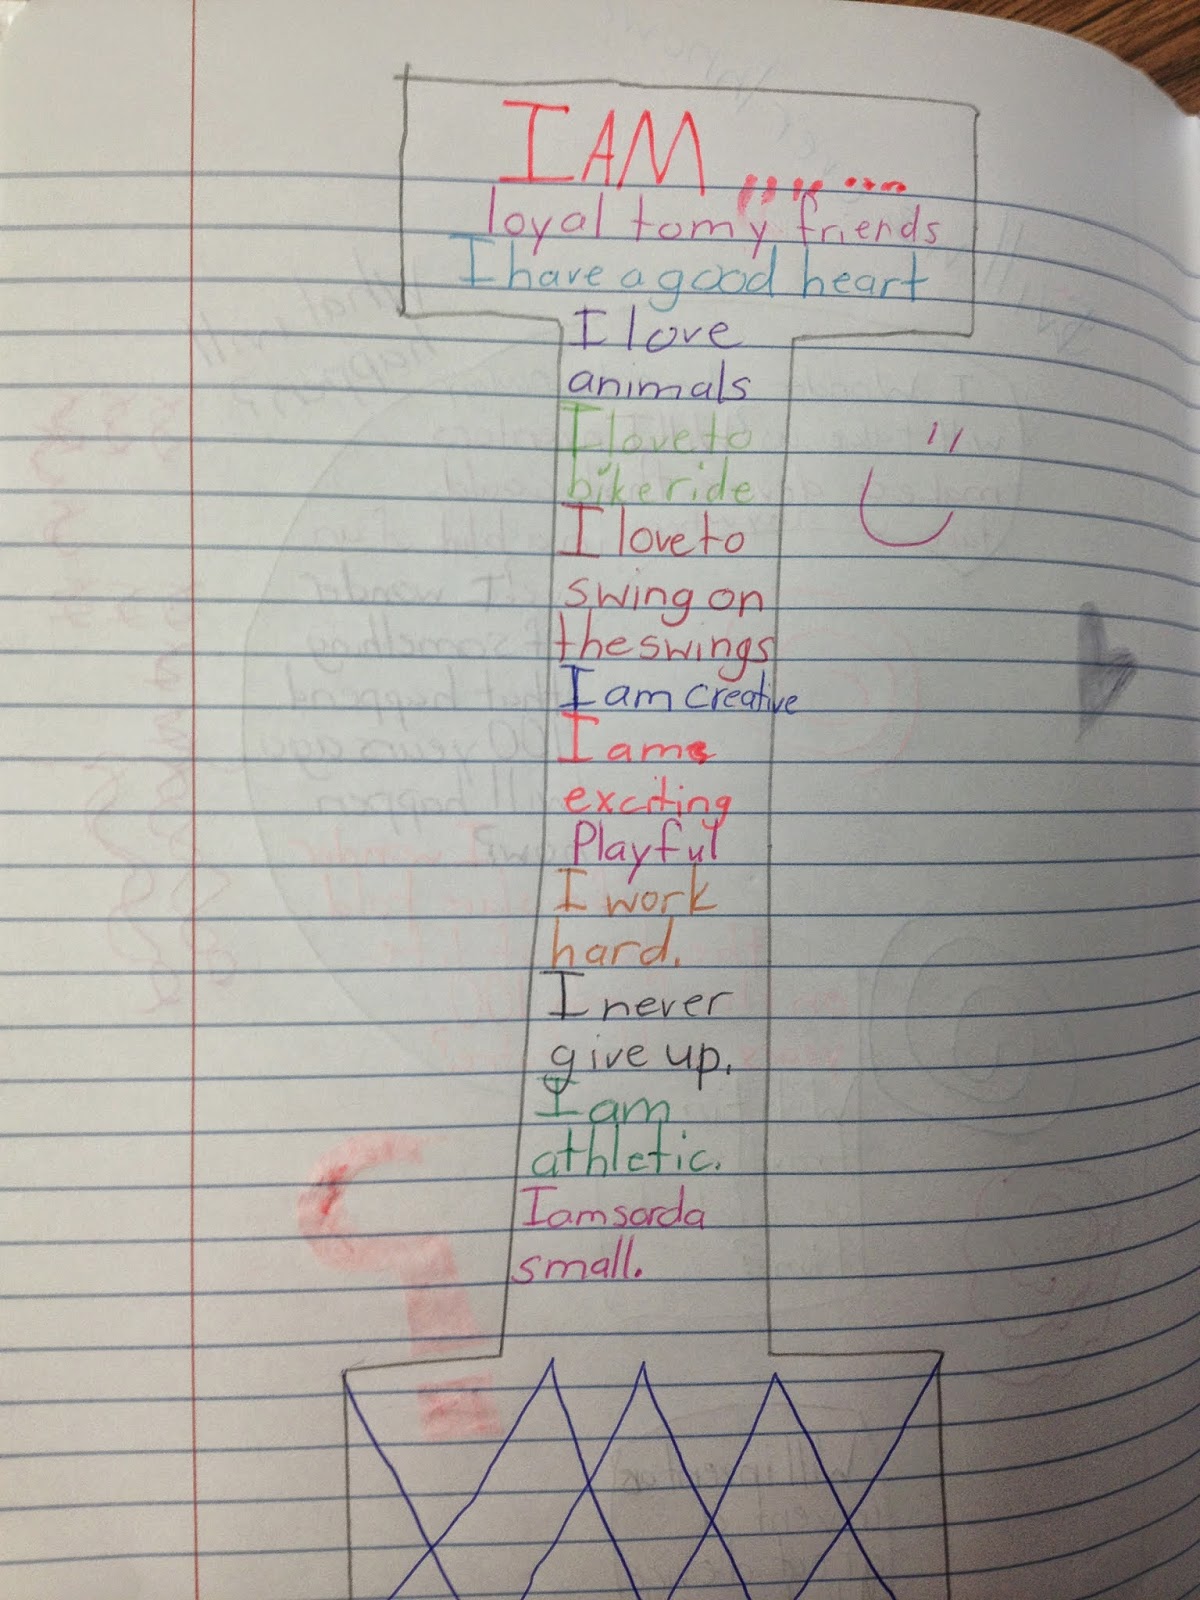 I AM .......
loyal to my friends
I have a good heart
I love
animals
I love to
bike ride
I love to
swing on
the swings
I am creative
I am
exciting
Playful
I work
hard.
I never
give up.
I am
athletic.
I am sorda
small.